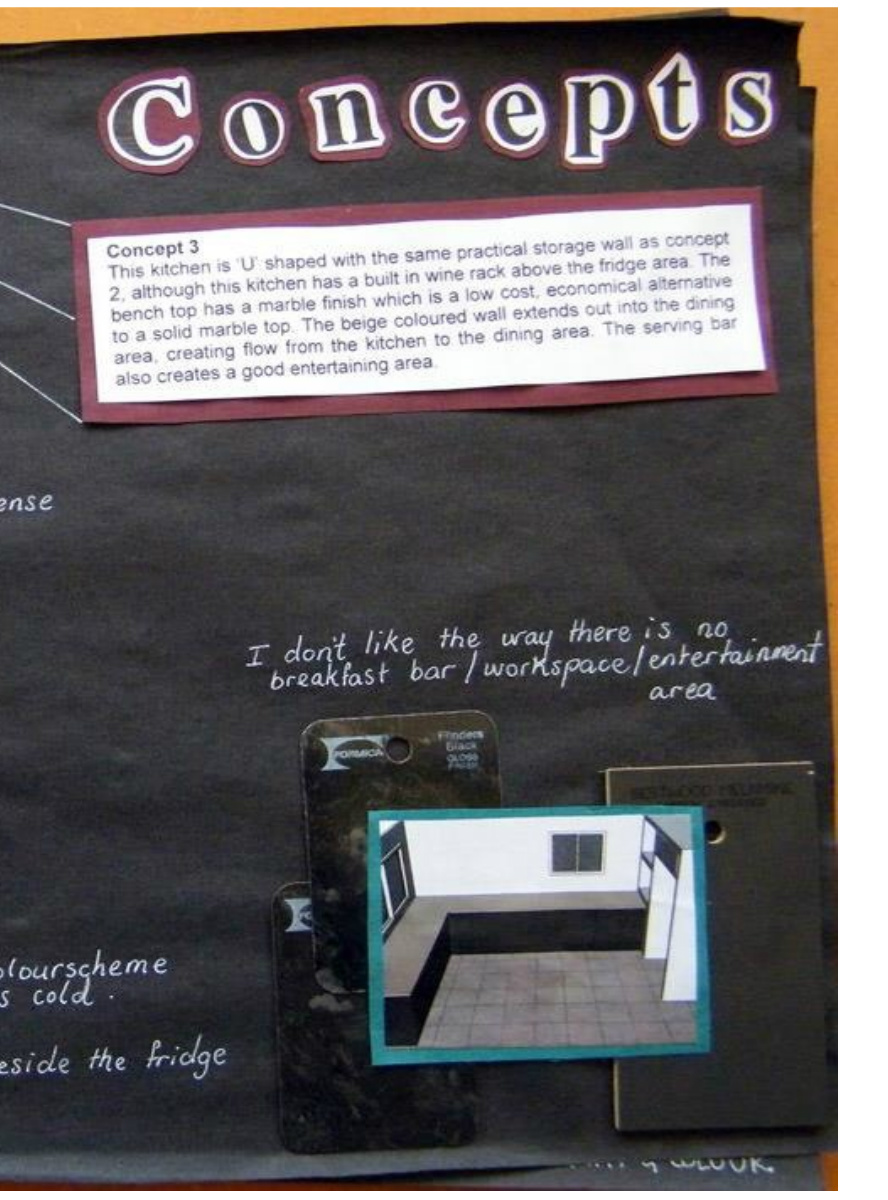 Concepts
Concept 3
This kitchen is 'U' shaped with the same practical storage wall as concept
2, although this kitchen has a built in wine rack above the fridge area. The
bench top has a marble finish which is a low cost, economical alternative
to a solid marble top. The beige coloured wall extends out into the dining
area, creating flow from the kitchen to the dining area. The serving bar
also creates a good entertaining area.
ense
I don't like the way there is no
breakfast bar / workspace / entertainment
area
FORMICA
Flinders
Black
GLOSS
FINISH
BESTWOOD MELAMINE
olourscheme
s cold.
eside the fridge